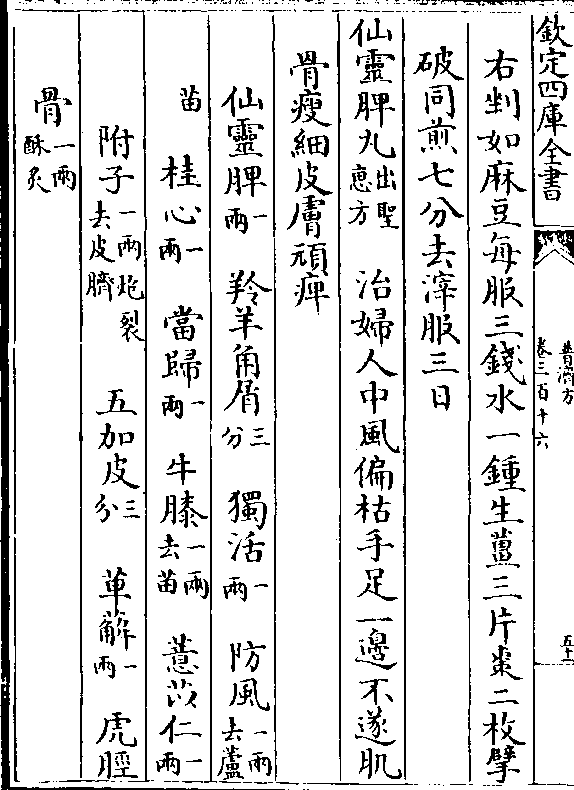 欽定四庫全書
普濟方
卷三百十六
五十一
右剉如麻豆每服三錢水一鍾生薑三片棗二枚擘
破同煎七分去滓服三日
仙靈脾丸出聖惠方 治婦人中風偏枯手足一邊不遂肌
骨瘦細皮膚頑痺
仙靈脾一兩 羚羊角屑三分 獨活一兩 防風一兩去蘆
苗 桂心一兩 當歸一兩 牛膝一兩去苗 薏苡仁一兩
附子一兩炮裂去皮臍 五加皮三分 萆薢一兩 虎脛
骨一兩酥炙